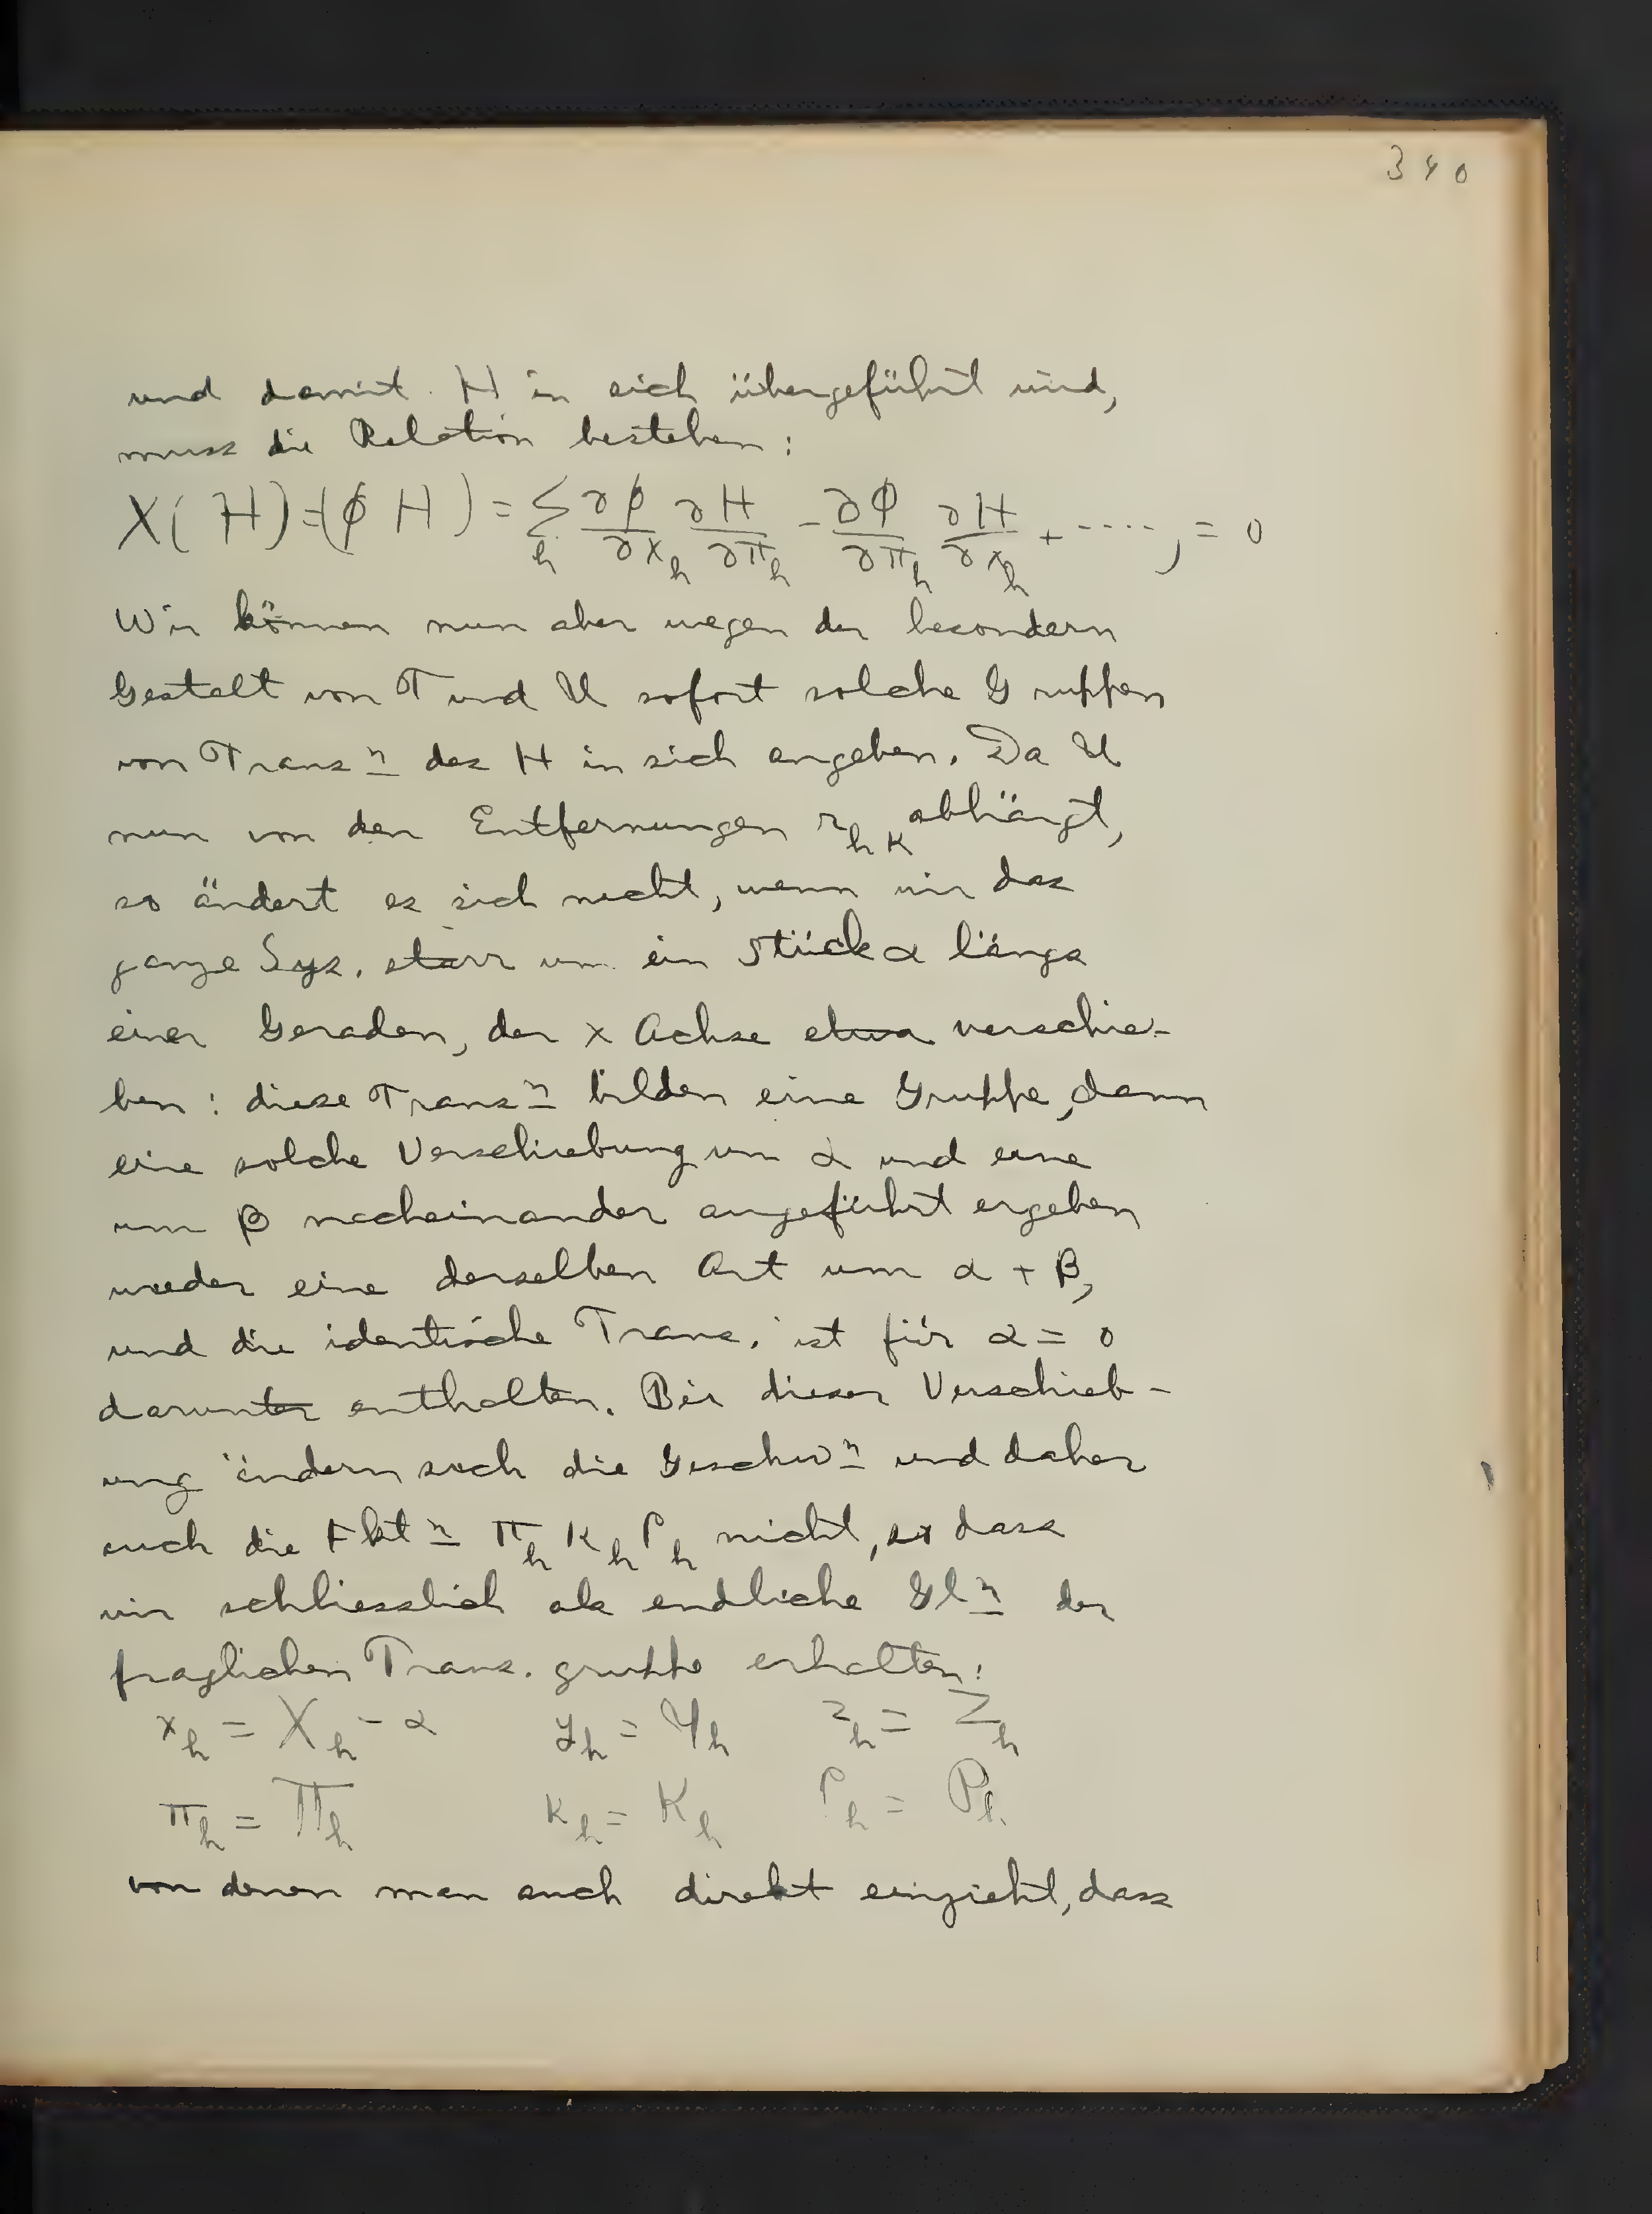 340
und damit H in sich übergeführt wird,
muss die Relation bestehen:
X(H)=(ϕ H) = ∑_h ∂ϕ/∂x_h ∂H/∂π_h - ∂ϕ/∂π_h ∂H/∂x_h + ····, = 0
Wir können nun aber wegen der besondern
Gestalt von T und U sofort solche Gruppen
von Trans<u>n</u> des H in sich angeben. Da U
nun von den Entfernungen r_hκ abhängt,
so ändert es sich nicht, wenn wir das
ganze Sys. starr um ein Stück α längs
einer Geraden, der x Achse etwa verschie-
ben: diese Trans<u>n</u> bilden eine Gruppe, denn
eine solche Verschiebung um α und eine
um β nacheinander ausgeführt ergeben
wieder eine derselben Art um α + β,
und die identische Trans. ist für α = 0
darunter enthalten. Bei dieser Verschieb-
ung ändern sich die Geschw<u>n</u> und daher
auch die Fkt<u>n</u> π_h κ_h ρ_h nicht, so dass
wir schliesslich als endliche Gl<u>n</u> der
fraglichen Trans. gruppe erhalten:
x_h = X_h - α y_h = Y_h z_h = Z_h
π_h = Π_h κ_h = K_h ρ_h = P_h
von denen man auch direkt einsieht, dass